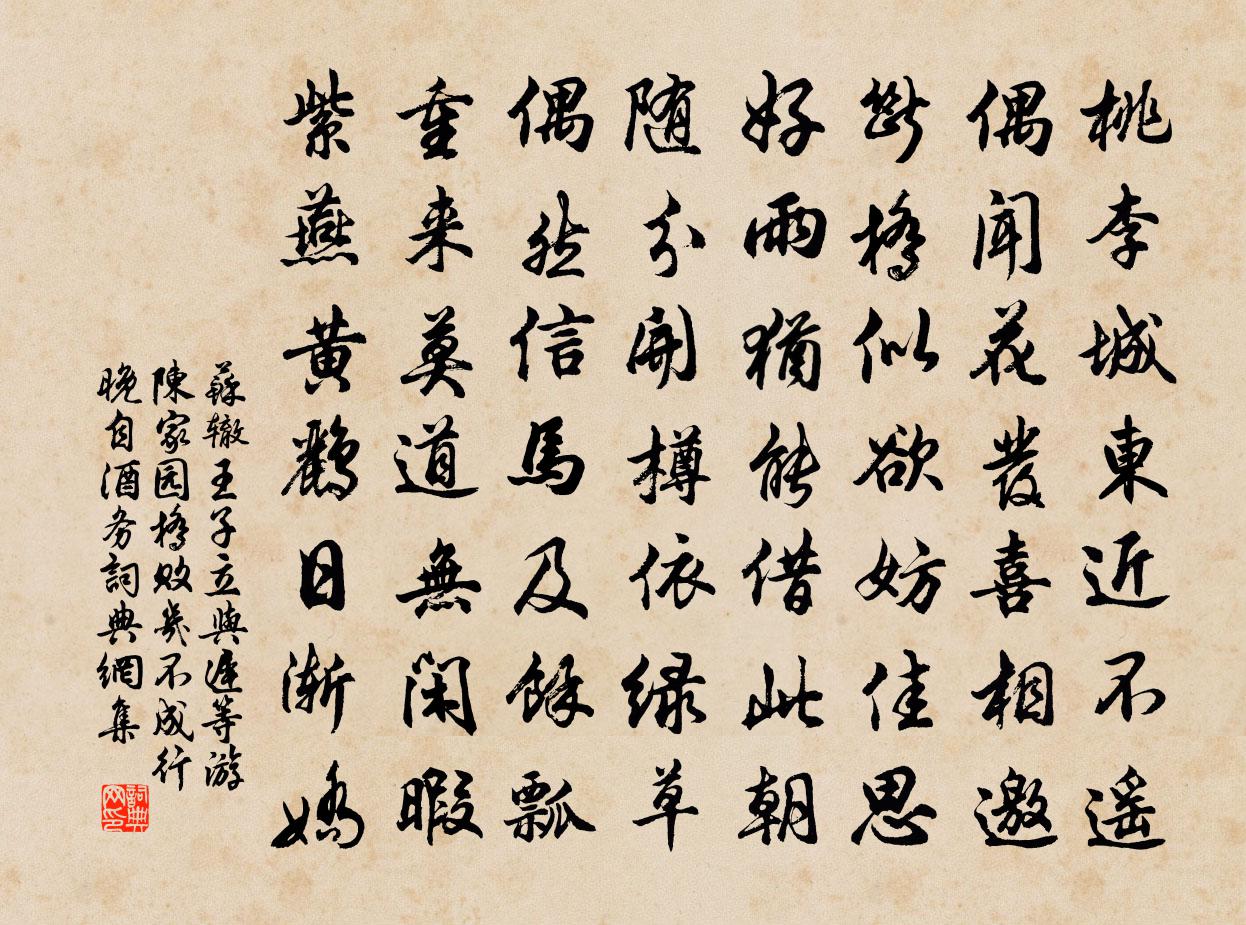 桃李城東近不遥
偶闻花發喜相邀
斷橋似欲妨佳思
好雨猶能借此朝
随分開樽依绿草
偶然信馬及餘瓢
重来莫道無閑暇
紫燕黄鸝日渐嬌
蘇辙王子立與遲等游
陳家园橋败幾不成行
晚自酒务詞典網集
詞典网印